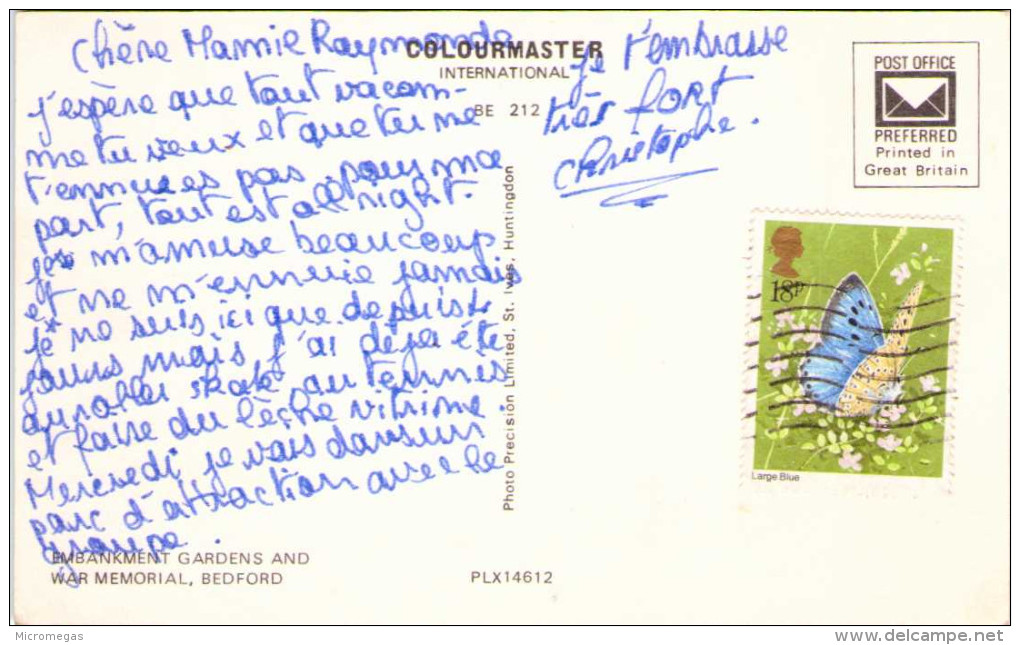 Chère Mamie Raymonde
j'espère que tout va com-
me tu veux et que tu ne
t'ennuies pas. pour ma
part, tout est all right.
je m'amuse beaucoup
et ne m'ennuie jamais
je ne suis ici que depuis 4
jours mais j'ai déjà été
au roller skate au tennis
et faire du lèche vitrine.
Mercredi, je vais dans un
parc d'attraction avec le
groupe.
je t'embrasse
très fort
Christophe.
COLOURMASTER
INTERNATIONAL
BE 212
Photo Precision Limited, St. Ives, Huntingdon
POST OFFICE
PREFERRED
Printed in
Great Britain
18P
Large Blue
EMBANKMENT GARDENS AND
WAR MEMORIAL, BEDFORD
PLX14612
Micromegas
www.delcampe.net